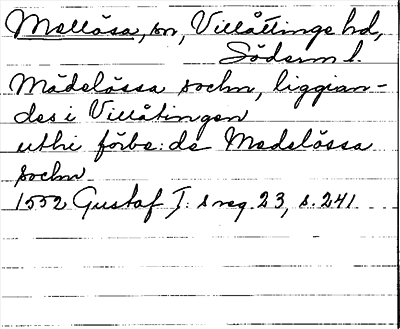 Mellösa, sn, Villåttinge hd,
Söderm l.
Mädelössa sochn, liggian-
des i Villåtingen
uthi förbe:de Medelössa
sochn
1552 Gustaf I:s reg. 23, s. 241